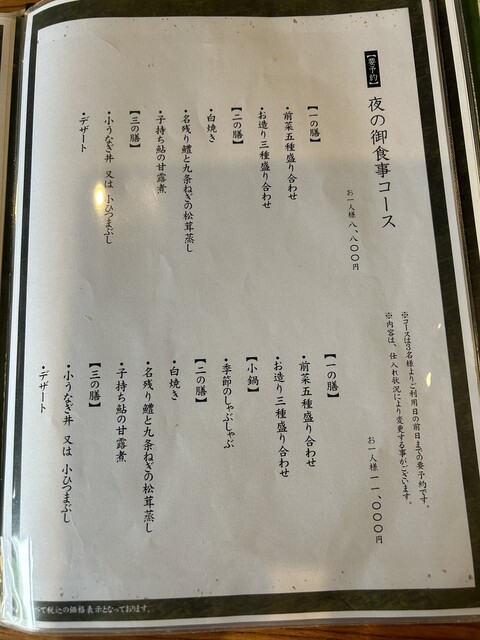 【要予約】
夜の御食事コース
※コースは3名様よりご利用日の前日までの要予約です。
※内容は、仕入れ状況により変更する事がございます。
お一人様 八、八〇〇円
【一の膳】
・前菜五種盛り合わせ
・お造り三種盛り合わせ
【二の膳】
・白焼き
・名残り鱧と九条ねぎの松茸蒸し
・子持ち鮎の甘露煮
【三の膳】
・小うなぎ丼 又は 小ひつまぶし
・デザート
お一人様 一一、〇〇〇円
【一の膳】
・前菜五種盛り合わせ
・お造り三種盛り合わせ
【小鍋】
・季節のしゃぶしゃぶ
【二の膳】
・白焼き
・名残り鱧と九条ねぎの松茸蒸し
・子持ち鮎の甘露煮
【三の膳】
・小うなぎ丼 又は 小ひつまぶし
・デザート
べて税込の価格表示となっております。